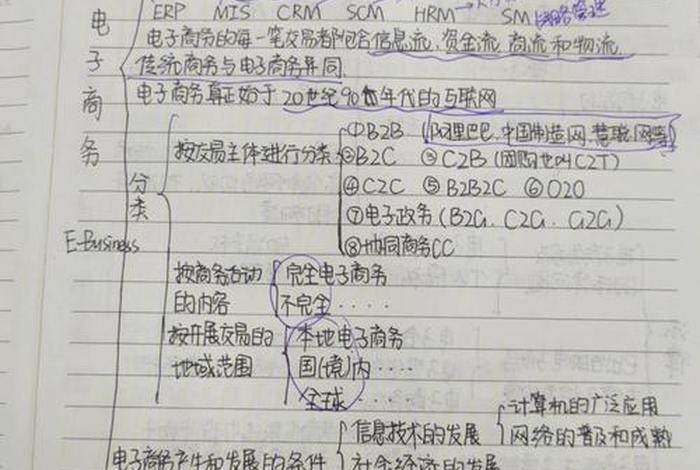 ERP MIS CRM SCM HRM SM 战略管理
电子商务
E-Business
电子商务的每一笔交易都包含信息流、资金流、商流和物流.
传统商务与电子商务异同.
电子商务真正始于20世纪90年代的互联网
分类
按交易主体进行分类
①B2B (阿里巴巴、中国制造网、慧聪网等)
②B2C ③C2B (团购也叫C2T)
④C2C ⑤B2B2C ⑥O2O
⑦电子政务 (B2G、C2G、G2G)
⑧协同商务CC
按商务活动的内容
完全电子商务
不完全····
按开展交易的地域范围
本地电子商务
国(境)内····
全球···
电子商务产生和发展的条件
信息技术的发展
计算机的广泛应用
网络的普及和成熟
社会经济的发展